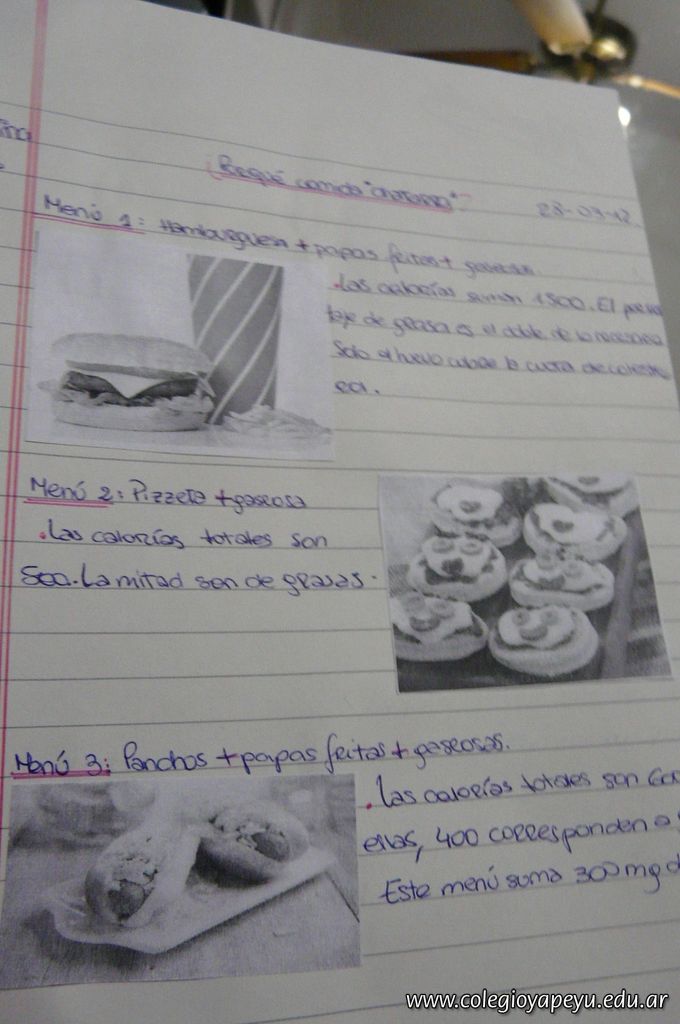 ¿Porqué comida "chatarra"?
28-03-12
Menú 1: Hamburguesa + papas feitas + gaseosa.
.Las calorías suman 1500. El
taje de grasa es el doble de lo
Solo el huevo cubre la cuota de
Menú 2: Pizzeta + gaseosa
.Las calorías totales son
500. La mitad son de grasas.
Menú 3: Panchos + papas feitas + gaseosas.
.Las calorías totales son
ellas, 400 corresponden a
Este menú suma 300 mg d
www.colegioyapeyu.edu.ar